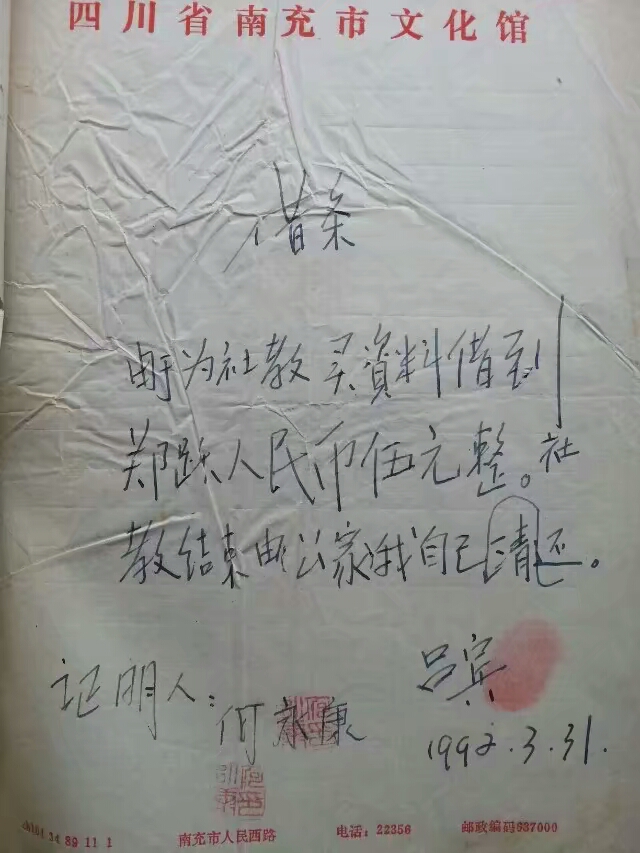 四川省南充市文化馆
借条
由于为社教买資料借到
郑跃人民币伍元整。社
教结束由公家或我自己清还。
证明人：何永康
吕宾
1992.3.31.
34 89 11 1 南充市人民西路 电话：22356 邮政编码637000